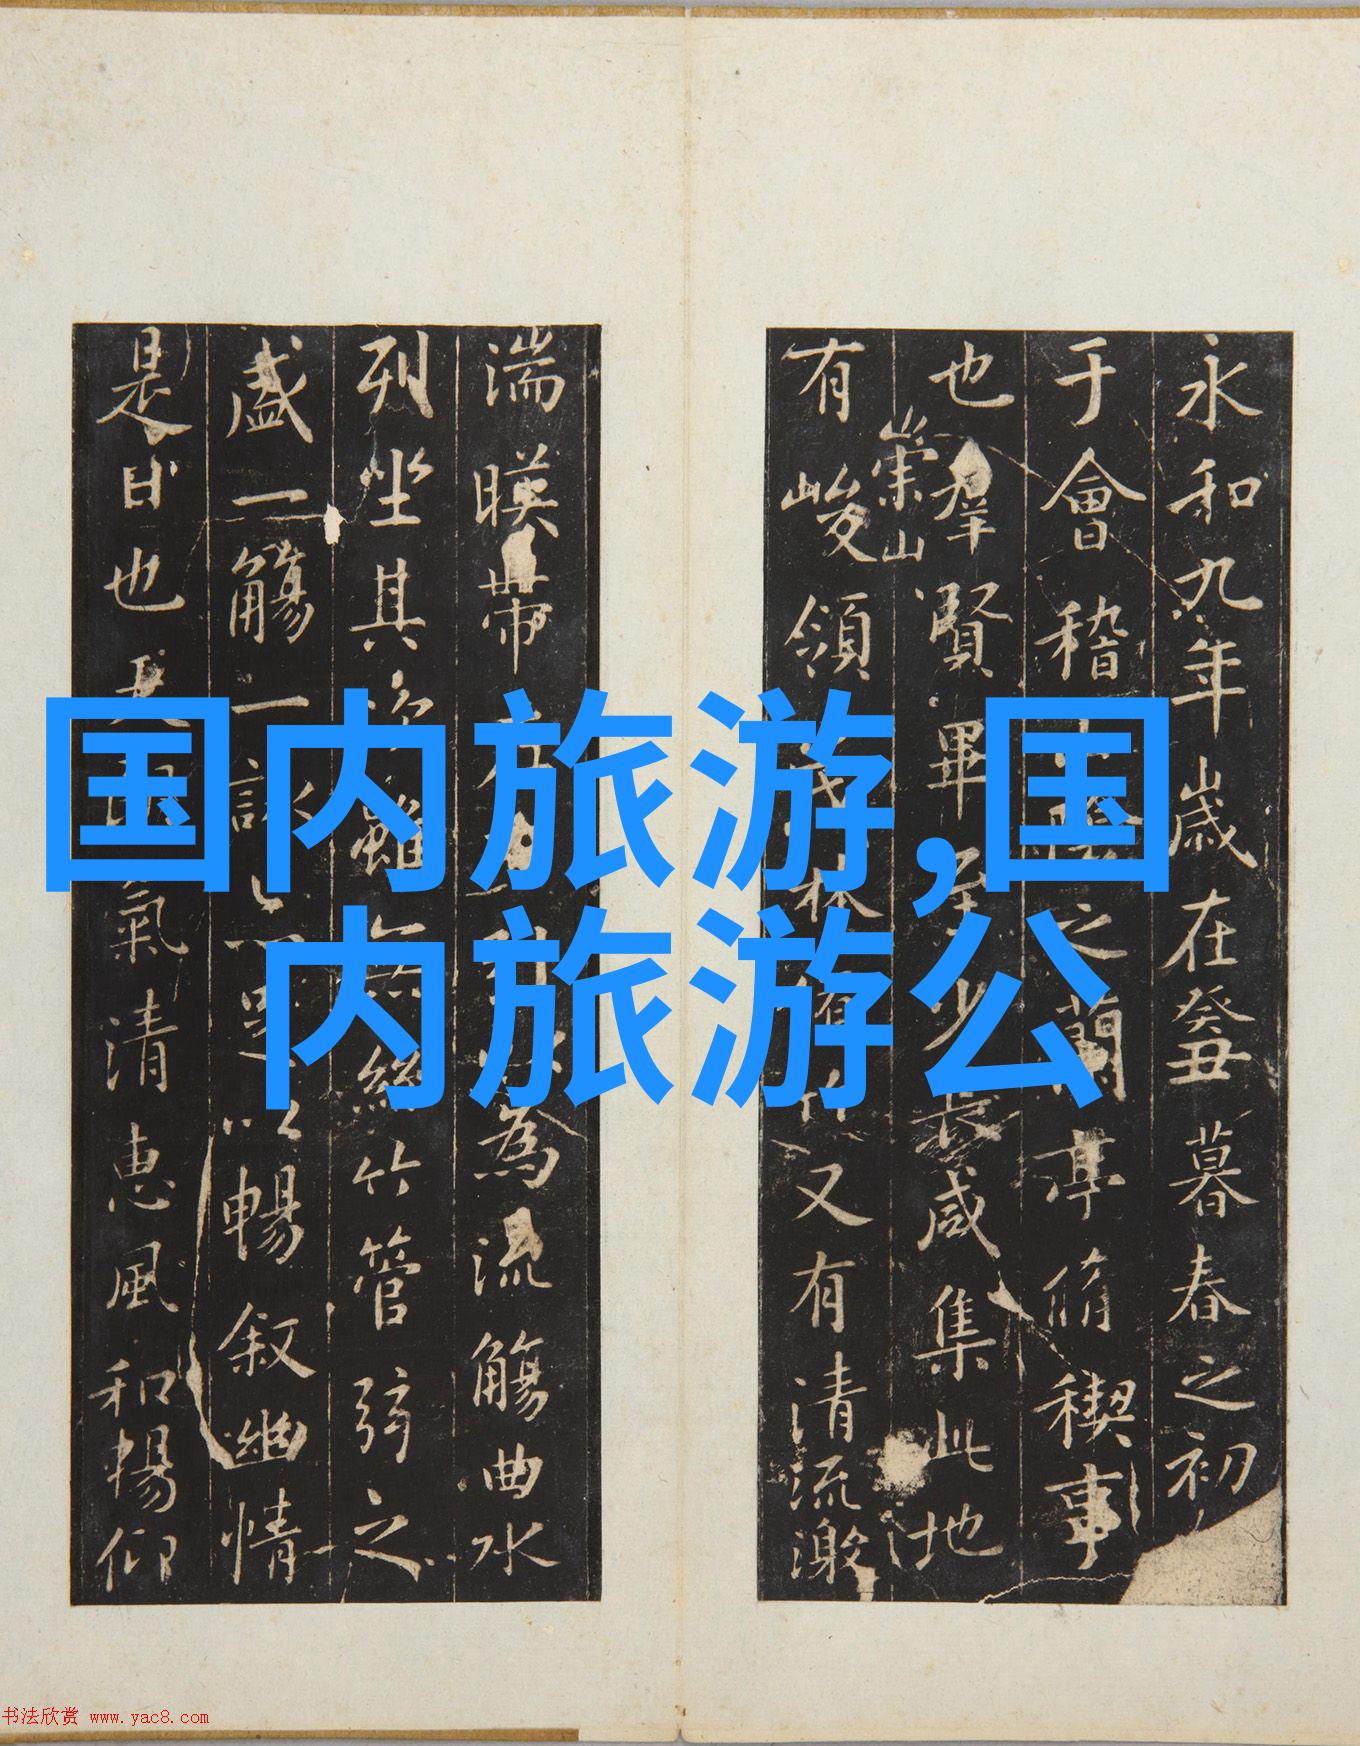 国内旅游,国
内旅游公
永和九年歲在癸丑暮春之初
于會稽之蘭亭脩稧事
也群賢畢至少長咸集此地
崇山
有峻領林又有清流激
湍暎帶左為流觴曲水
列坐其次雖絲竹管弦之
盛一觴一詠以暢敘幽情
是日也氣清惠風和暢仰
书法欣赏 www.yac8.com